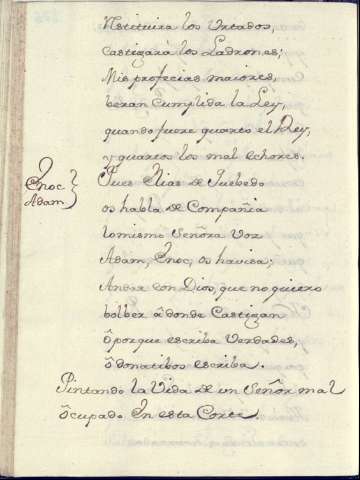 Restituira los Urtados,
Castigará los Ladrones;
Mis profecias maiores,
beran Cumplida la Ley,
quando fuere quarto el Rey,
y quartos los mal echores.
Enoc
Adam
Pues Elias de Quebedo
os habla de Compañia
lo mismo Señora Voz
Adam, Enoc, os havisa;
Andar con Dios, que no quiero
bolber â donde Castigan
ô porque escriba Verdades,
ô donatibos escriba.
Pintando la Vida de un Señor mal
ôcupado En esta Corte